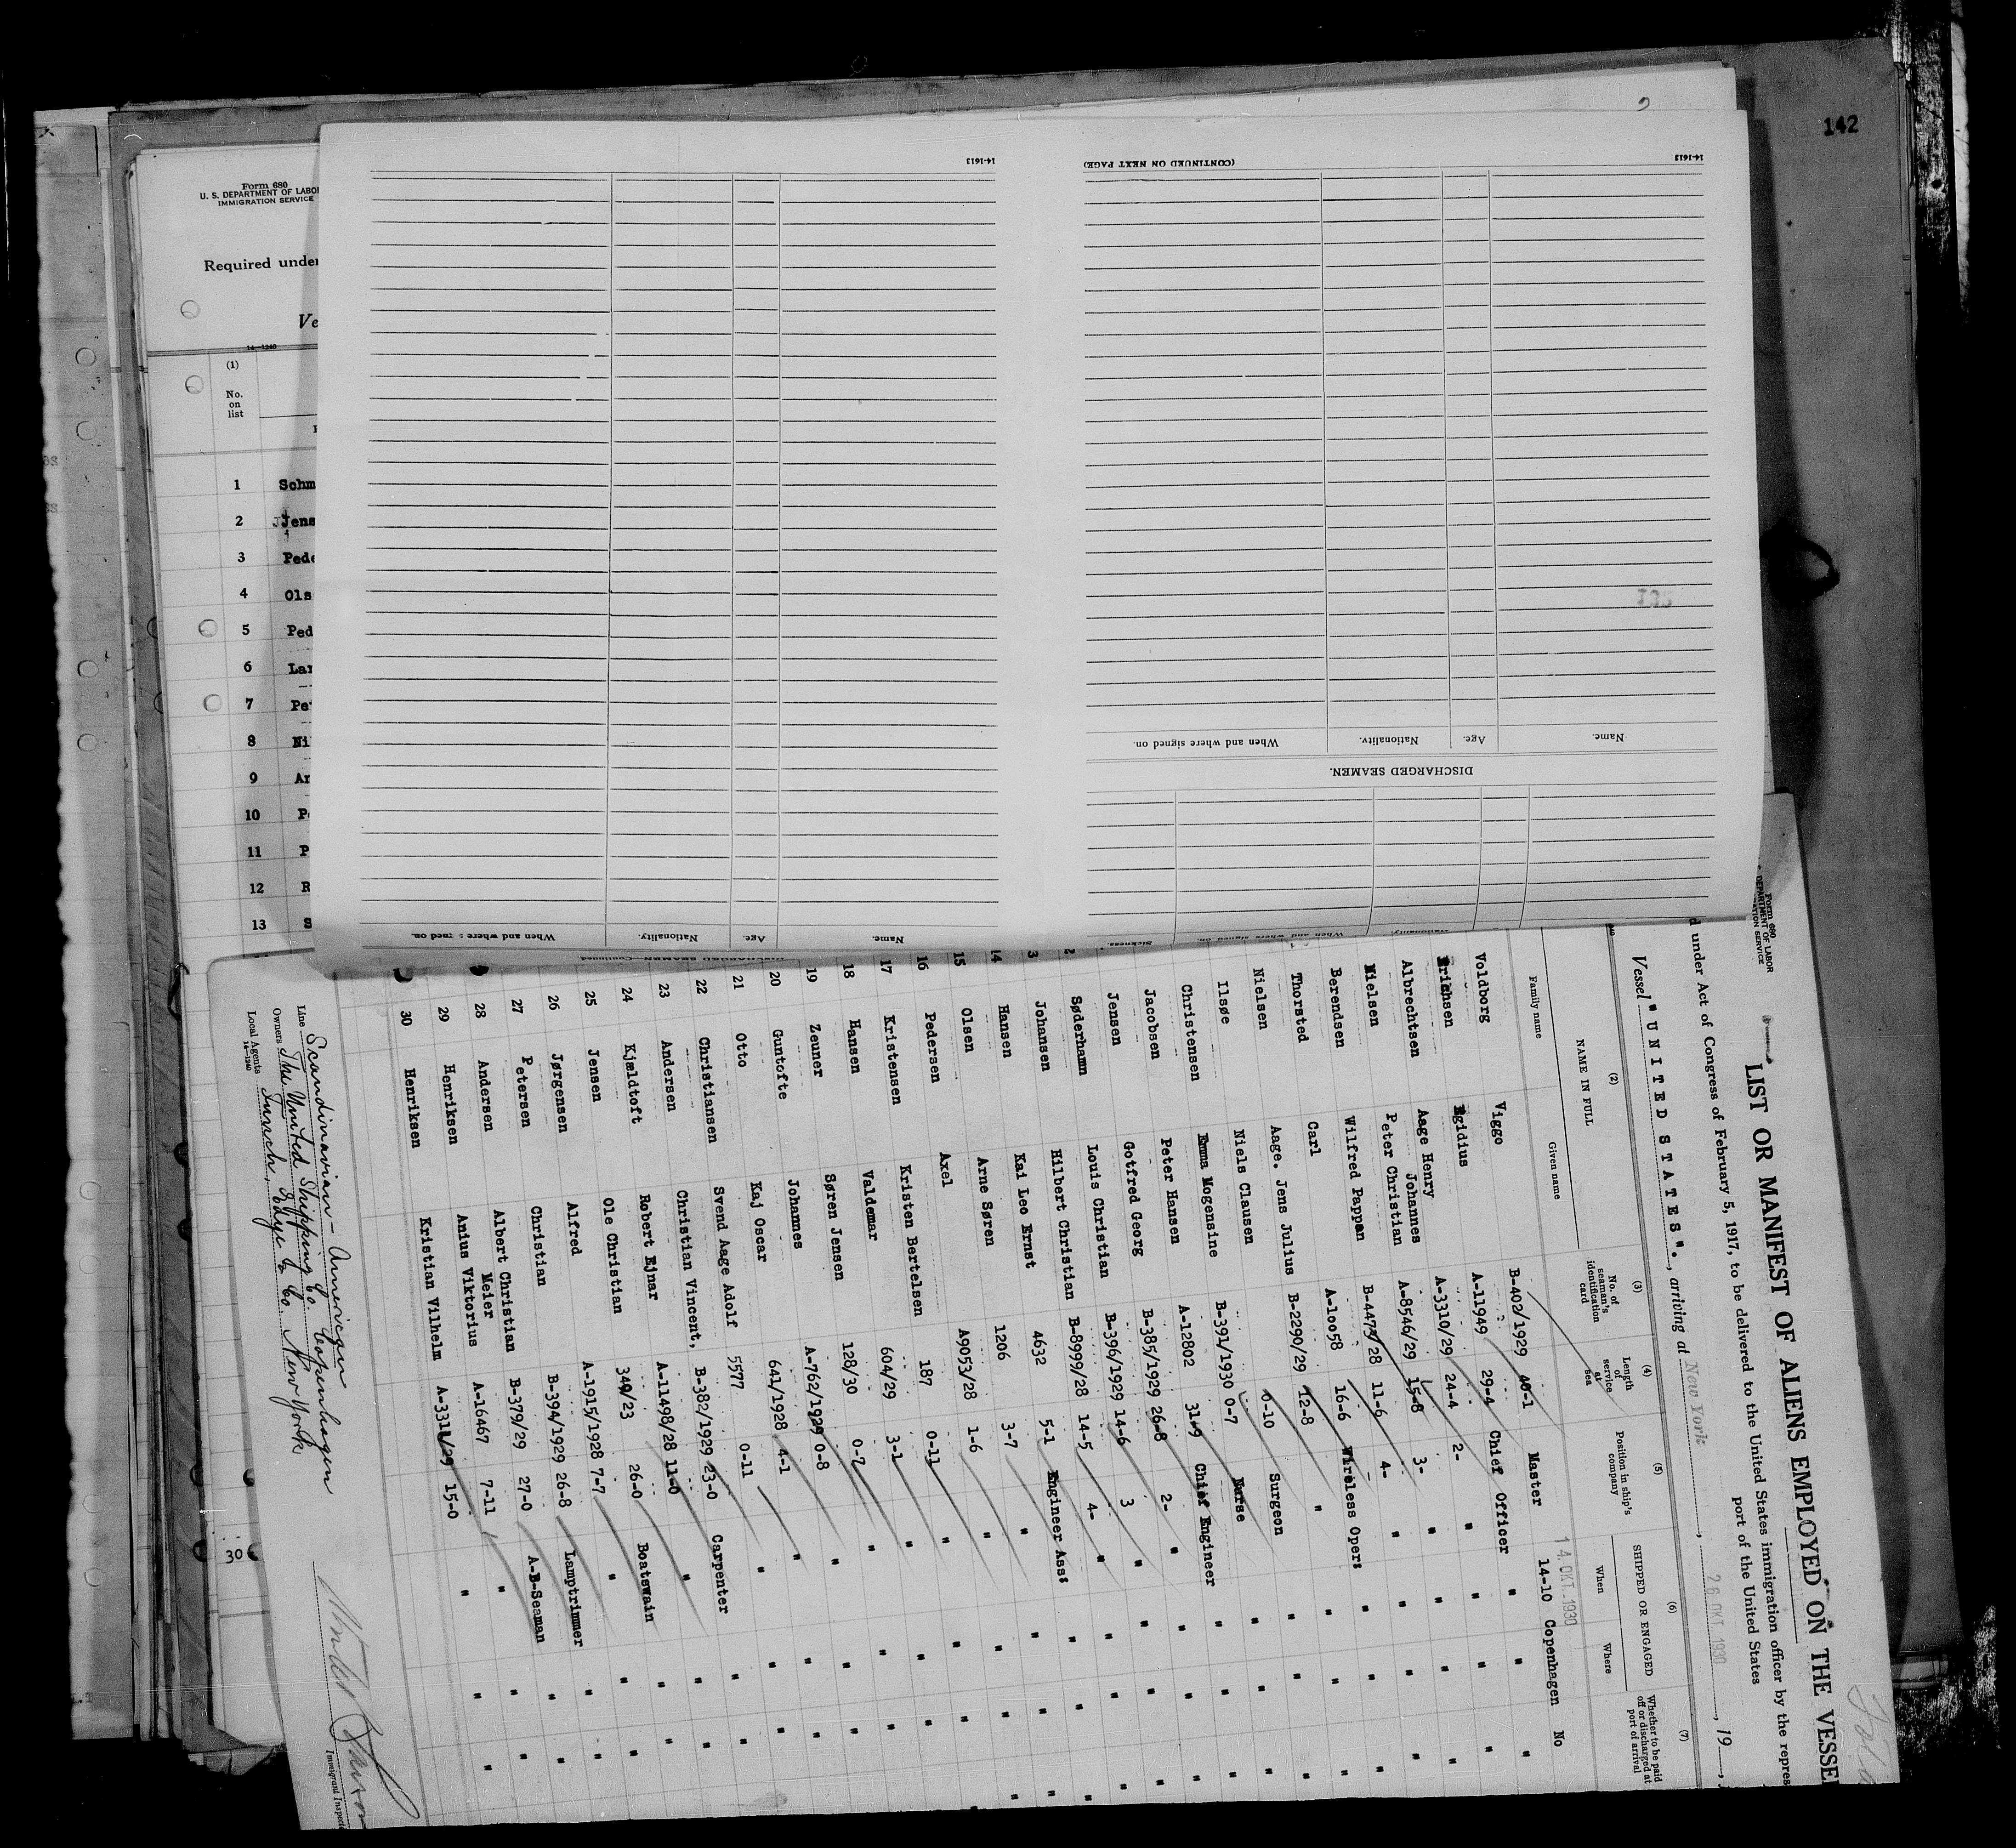 142
Form 680
U. S. DEPARTMENT OF LABOR
IMMIGRATION SERVICE
Required under
14—1240
(1)
No. on list
1 Schm
2 Jens
3 Pede
4 Ols
5 Ped
6 Lar
7 Pe
8 Ni
9 Ar
10 P
11 P
12 R
13 S
30
14-1613
(CONTINUED ON NEXT PAGE)
14-1613
DISCHARGED SEAMEN.
Name. Age. Nationality. When and where signed on.
Name. Age. Nationality. When and where signed on.
Form 680
DEPARTMENT OF LABOR
LIST OR MANIFEST OF ALIENS EMPLOYED ON THE VESSEL
under Act of Congress of February 5, 1917, to be delivered to the United States immigration officer by the repres
port of the United States
Vessel "UNITED STATES"., arriving at New York, 26 OKT. 1930, 19
(2) NAME IN FULL
Family name Given name
(3) No. of seaman's identification card
(4) Length of service at sea
(5) Position in ship's company
(6) SHIPPED OR ENGAGED
When Where
(7) Whether to be paid off or discharged at port of arrival
14 OKT. 1930
Voldborg Viggo B-402/1929 40-1 Master 14-10 Copenhagen No
Erichsen Egidius A-11949 29-4 Chief Officer " " "
Albrechtsen Aage Henry Johannes A-3310/29 24-4 2- " " " "
Nielsen Peter Christian A-8546/29 15-8 3- " " " "
Berendsen Wilfred Pappan B-4479/28 11-6 4- " " " "
Thorsted Carl A-10058 16-6 Wireless Oper: " " "
Nielsen Aage. Jens Julius B-2290/29 12-8 " " " "
Ilsøe Niels Clausen 0-10 Surgeon " " "
Christensen Emma Mogensine B-391/1930 0-7 Nurse " " "
Jacobsen Peter Hansen A-12802 31-9 Chief Engineer " " "
Jensen Gotfred Georg B-385/1929 26-8 2- " " " "
Søderhamn Louis Christian B-396/1929 14-6 3 " " " "
Johansen Hilbert Christian B-8999/28 14-5 4- " " " "
14 Hansen Kai Leo Ernst 4632 5-1 Engineer Ass: " " "
15 Olsen Arne Søren 1206 3-7 " " " "
16 Pedersen Axel A9053/28 1-6 " " " "
17 Kristensen Kristen Bertelsen 187 0-11 " " " "
18 Hansen Valdemar 604/29 3-1 " " " "
19 Zeuner Søren Jensen 128/30 0-7 " " " "
20 Guntofte Johannes A-762/1929 0-8 " " " "
21 Otto Kaj Oscar 641/1928 4-1 " " " "
22 Christiansen Svend Aage Adolf 5577 0-11 " " " "
23 Andersen Christian Vincent, B-382/1929 23-0 Carpenter " "
24 Kjældtoft Robert Ejnar A-11498/28 11-0 " " "
25 Jensen Ole Christian 349/23 26-0 Boatswain " "
26 Jørgensen Alfred A-1915/1928 7-7 " " "
27 Petersen Christian B-394/1929 26-8 Lamptrimmer " "
28 Andersen Albert Christian Meier B-379/29 27-0 A-B-Seaman " "
29 Henriksen Anius Viktorius A-16467 7-11 " " "
30 Henriksen Kristian Vilhelm A-3311/29 15-0 " " "
Line Scandinavian-American
Owners The United Shipping Co. Copenhagen
Local Agents Funch, Edye & Co. New York
14-1240
Immigrant Inspector